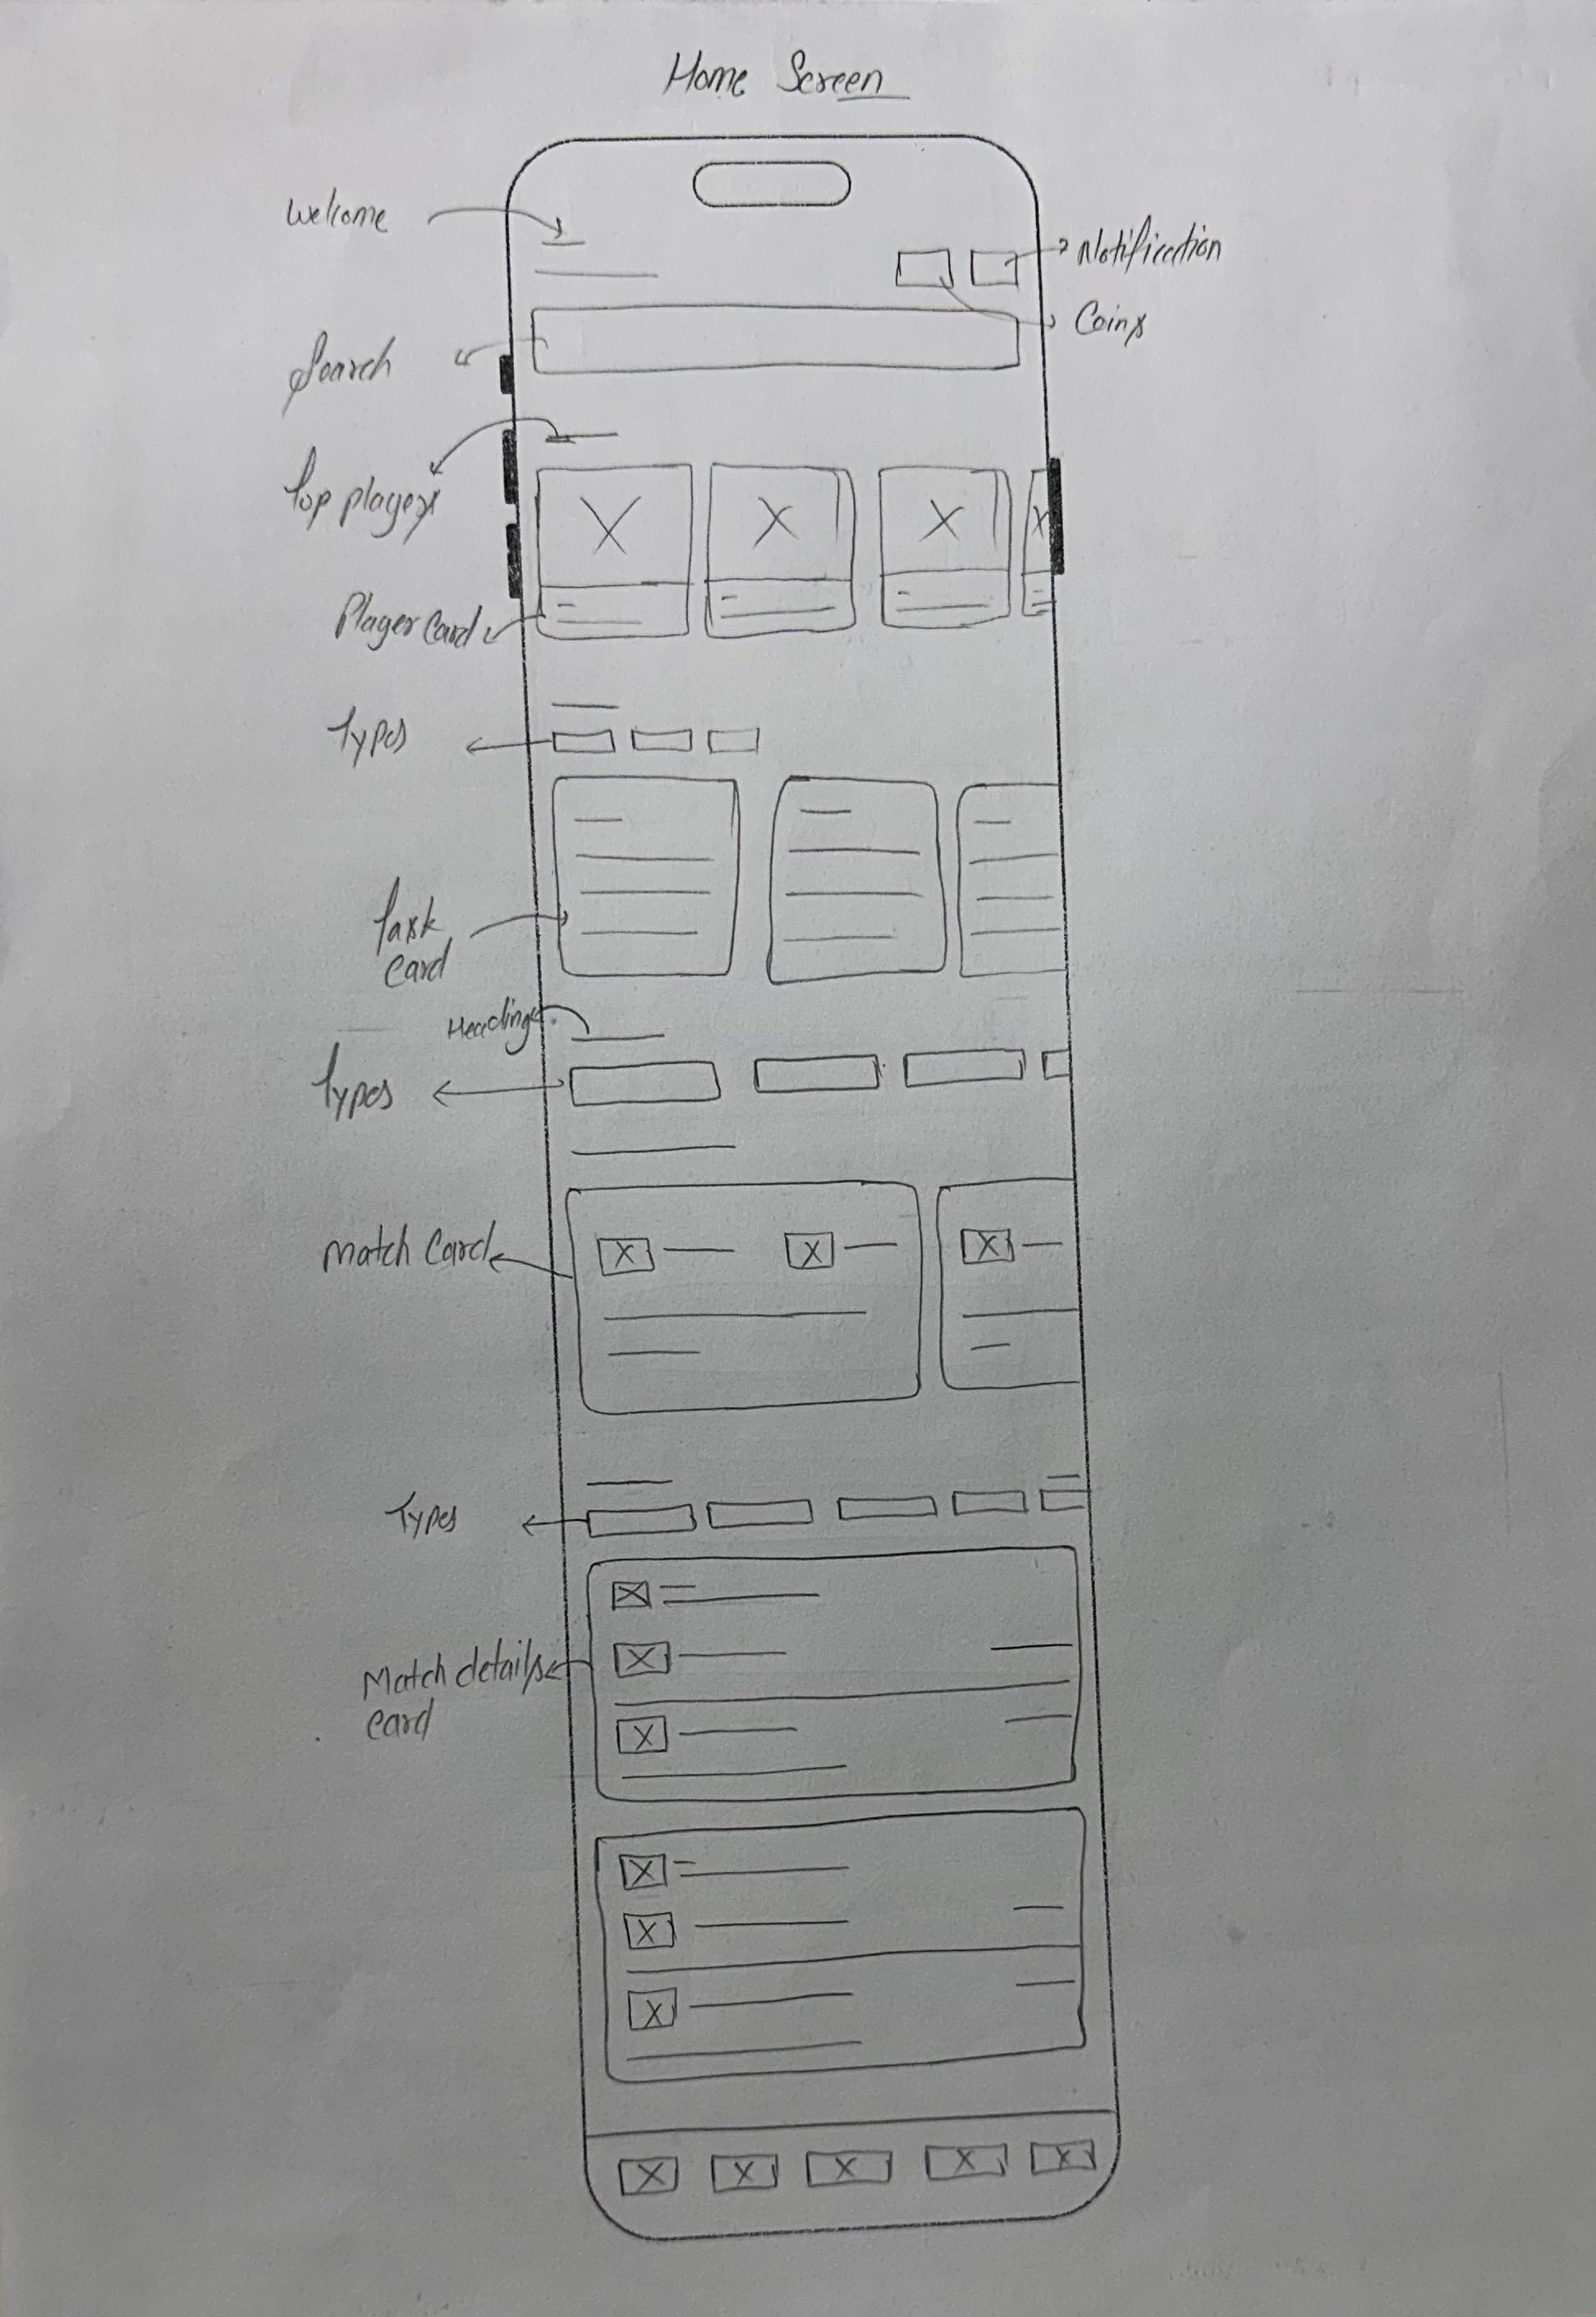 Home Screen
Welcome
Notification
Coins
Search
Top players
Player Card
Types
Task
Card
Heading
Types
Match Card
Types
Match details
Card